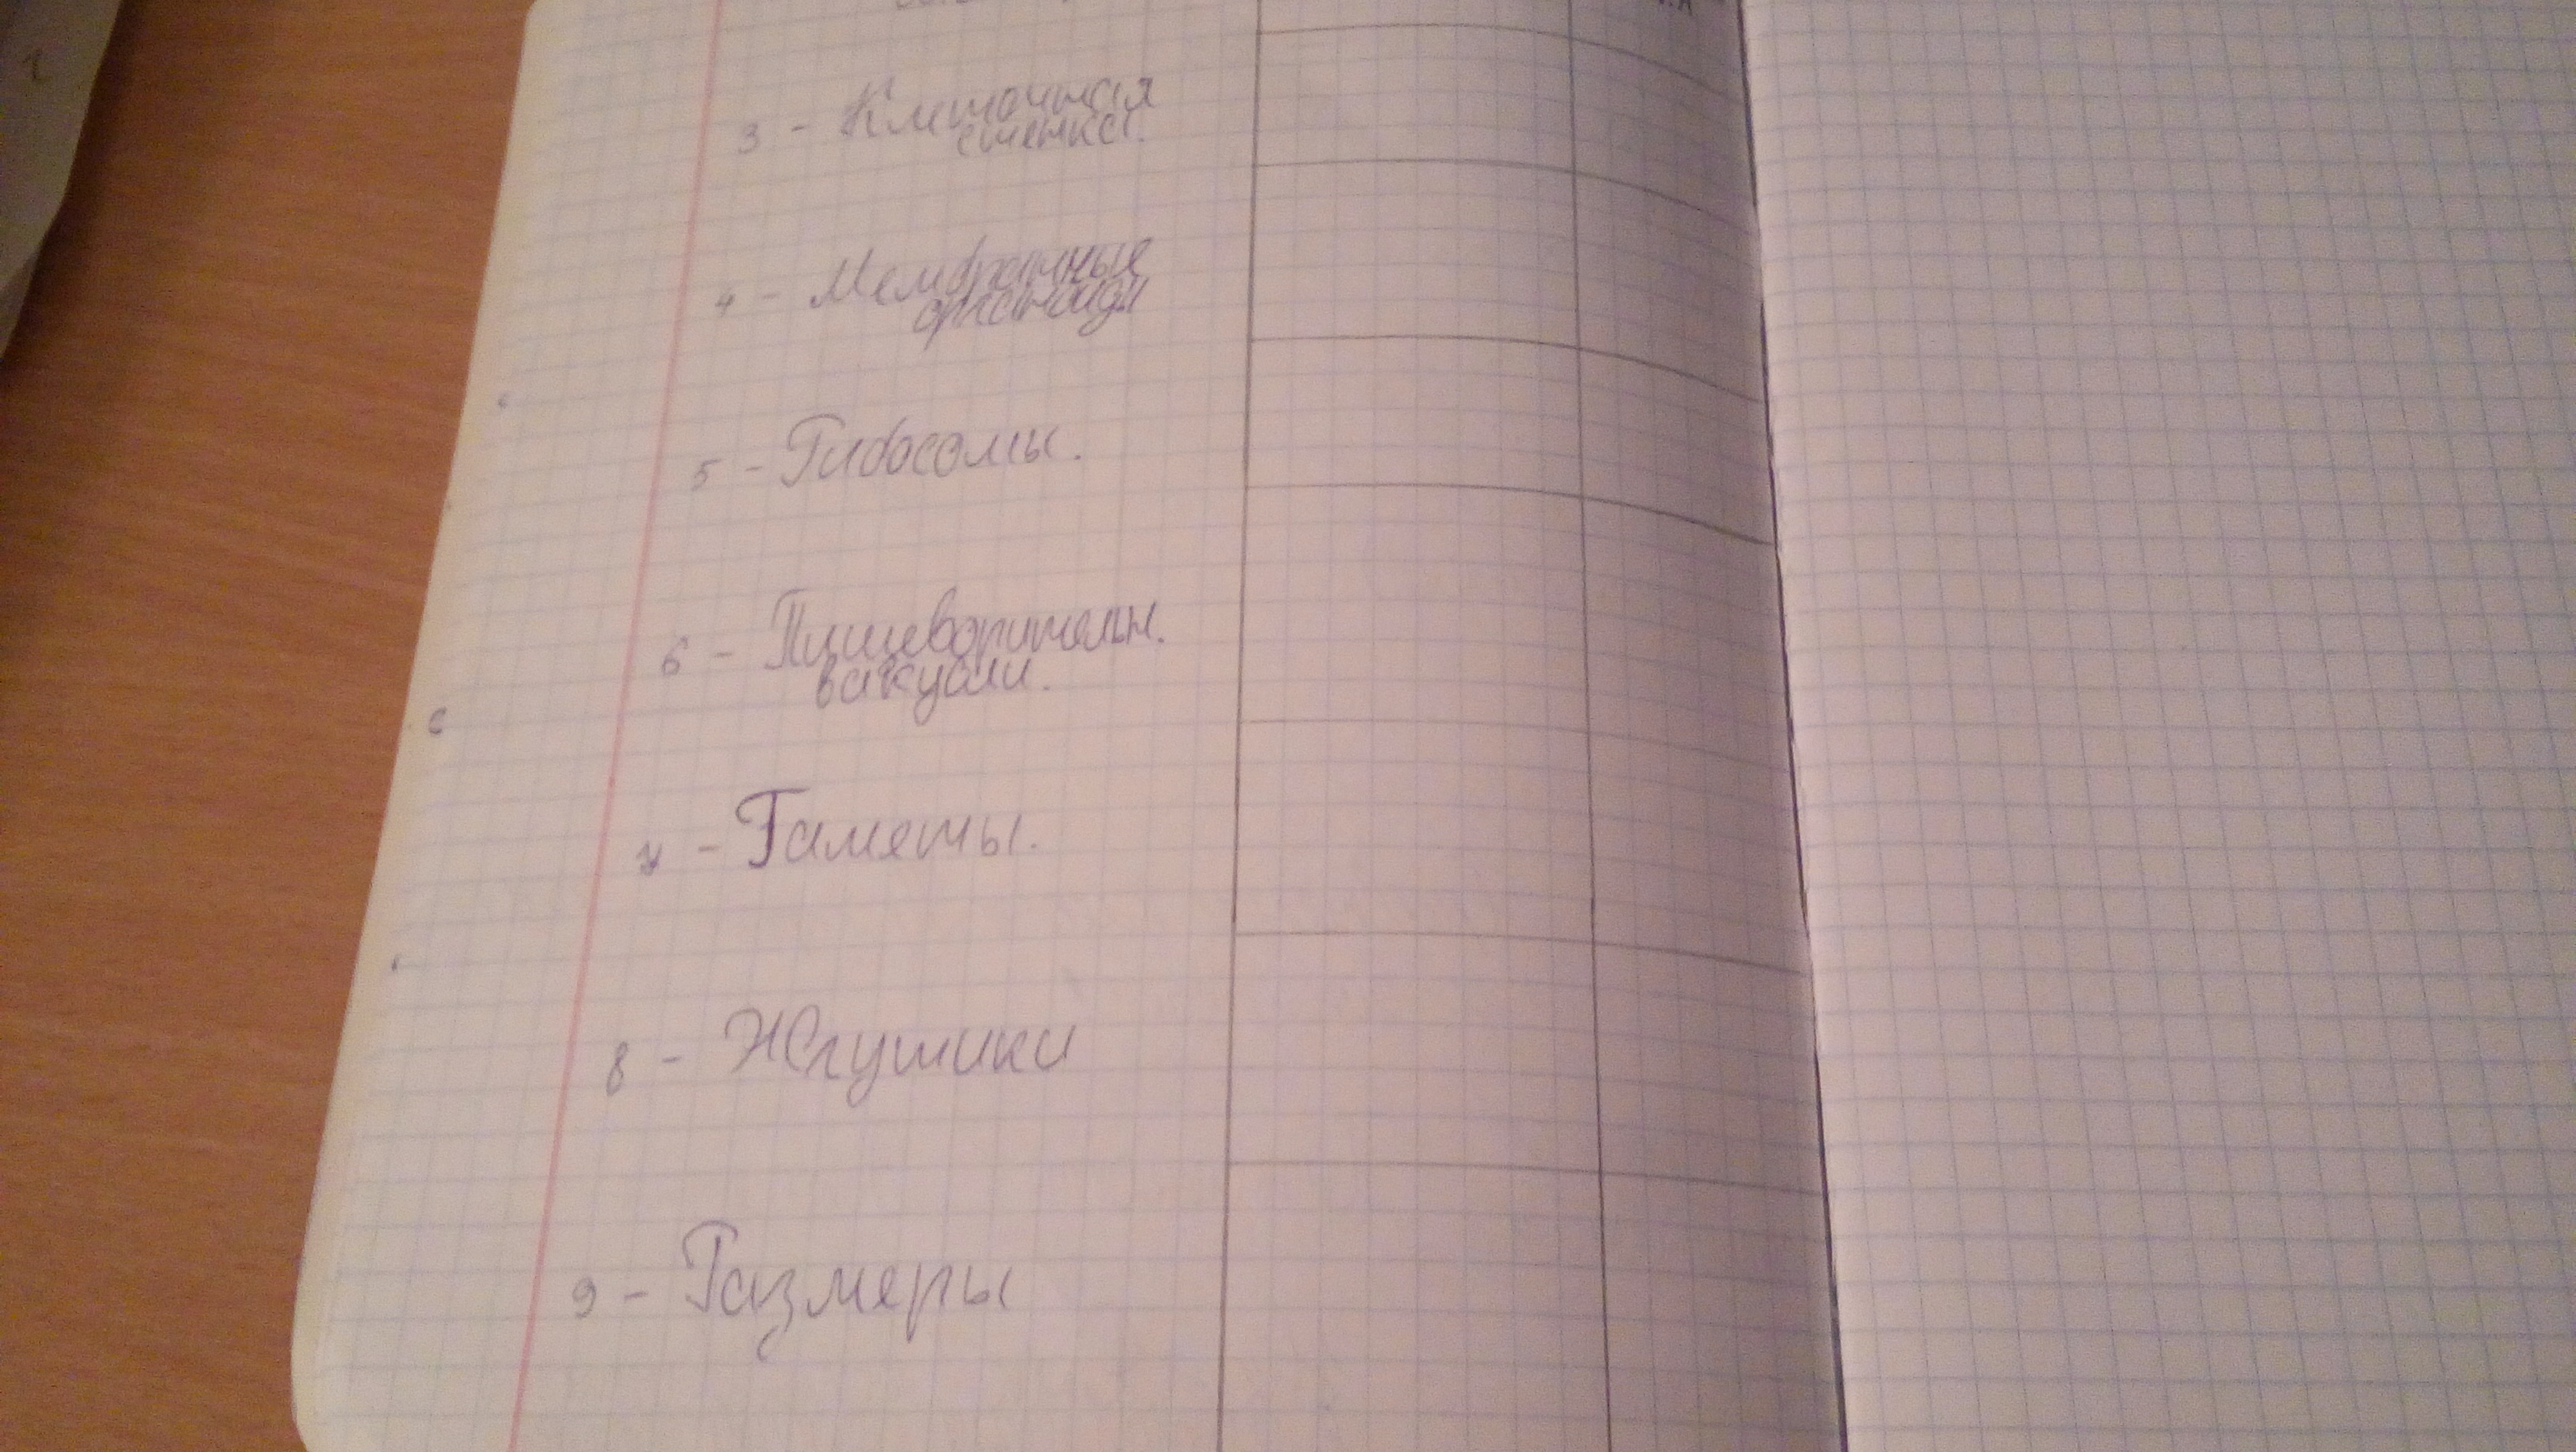 3 - Клеточная
стенка.
4 - Мембранные
органоиды
5 - Рибосомы.
6 - Пищеварительн.
вакуоли.
7 - Гаметы.
8 - Жгутики
9 - Размеры